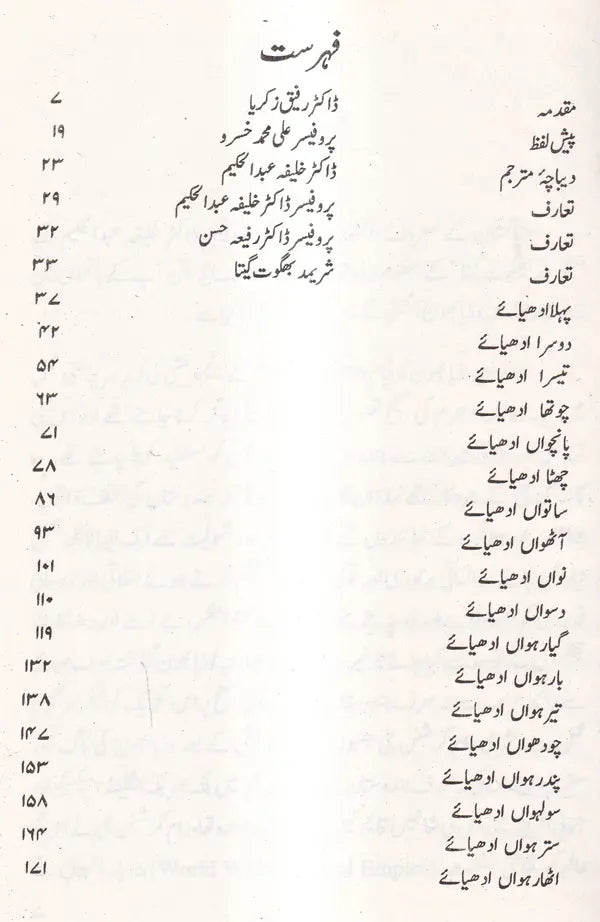 فہرست
مقدمہ ڈاکٹر رفیق زکریا ۷
پیش لفظ پروفیسر علی محمد خسرو ۱۹
دیباچۂ مترجم ڈاکٹر خلیفہ عبدالحکیم ۲۳
تعارف پروفیسر ڈاکٹر خلیفہ عبدالحکیم ۲۹
تعارف پروفیسر ڈاکٹر رفیعہ حسن ۳۲
تعارف شریمد بھگوت گیتا ۳۳
پہلا ادھیائے ۳۷
دوسرا ادھیائے ۴۲
تیسرا ادھیائے ۵۴
چوتھا ادھیائے ۶۳
پانچواں ادھیائے ۷۱
چھٹا ادھیائے ۷۸
ساتواں ادھیائے ۸۶
آٹھواں ادھیائے ۹۳
نواں ادھیائے ۱۰۱
دسواں ادھیائے ۱۱۰
گیارہواں ادھیائے ۱۱۹
بارہواں ادھیائے ۱۳۲
تیرہواں ادھیائے ۱۳۸
چودھواں ادھیائے ۱۴۷
پندرہواں ادھیائے ۱۵۳
سولہواں ادھیائے ۱۵۸
سترہواں ادھیائے ۱۶۴
اٹھارہواں ادھیائے ۱۷۱